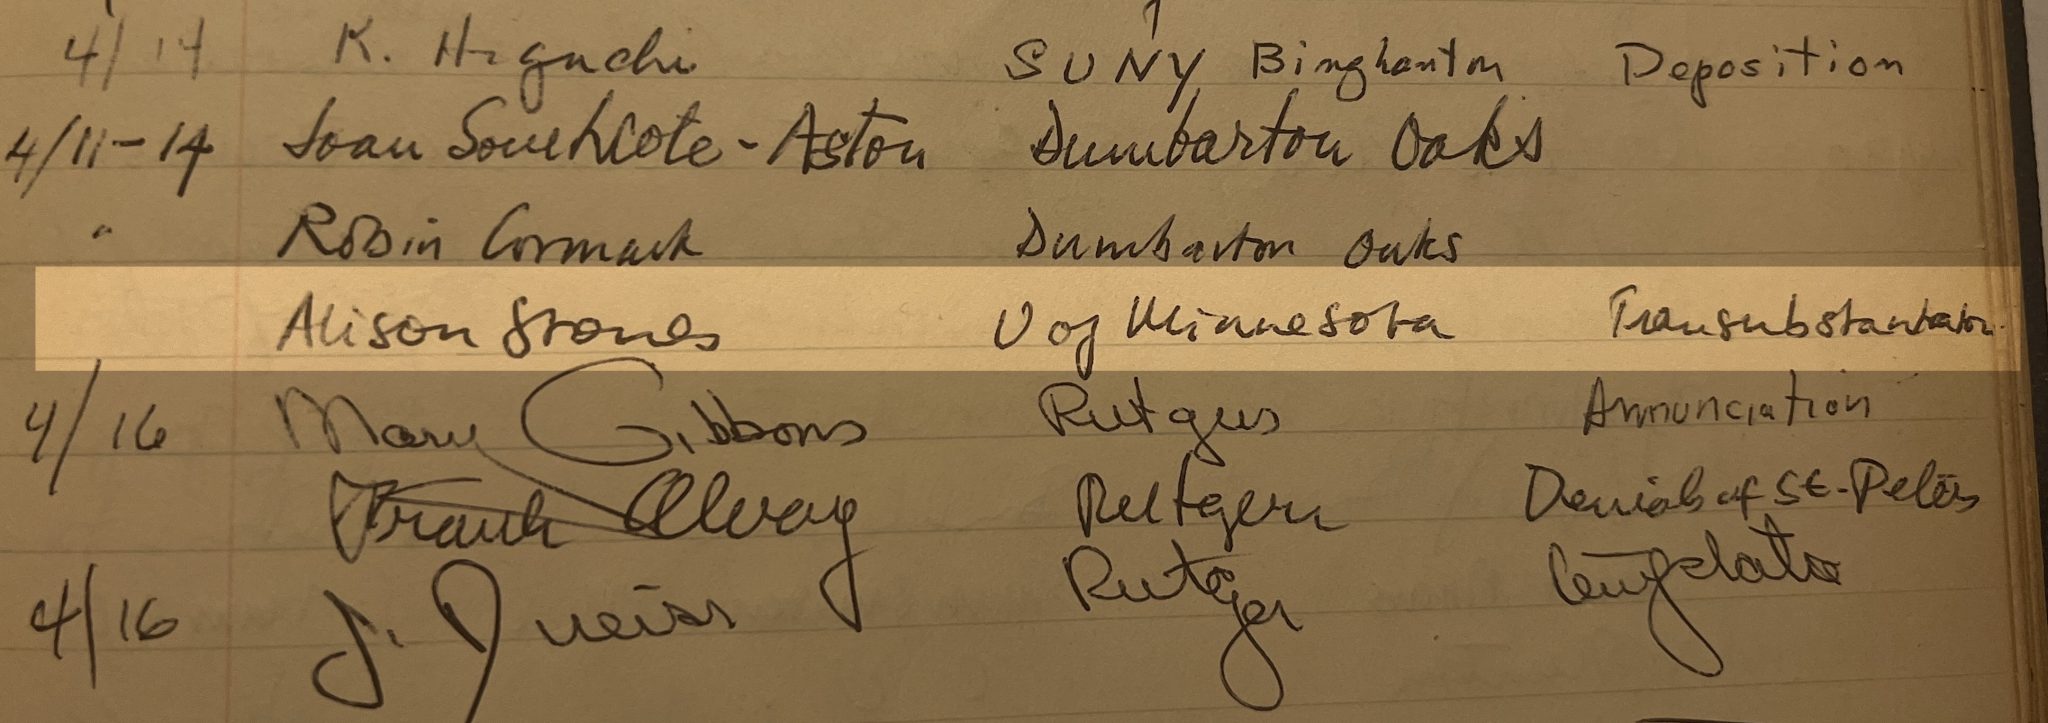 4/14 K. Higuchi SUNY Binghamton Deposition
4/11-14 Joan Southcote-Aston Dumbarton Oaks
" Robin Cormack Dumbarton Oaks
Alison Stones U of Minnesota Transubstantiation
4/16 Mary Gibbons Rutgers Annunciation
Frank Rutgers Denial of St. Peters
4/16 J. Rutgers